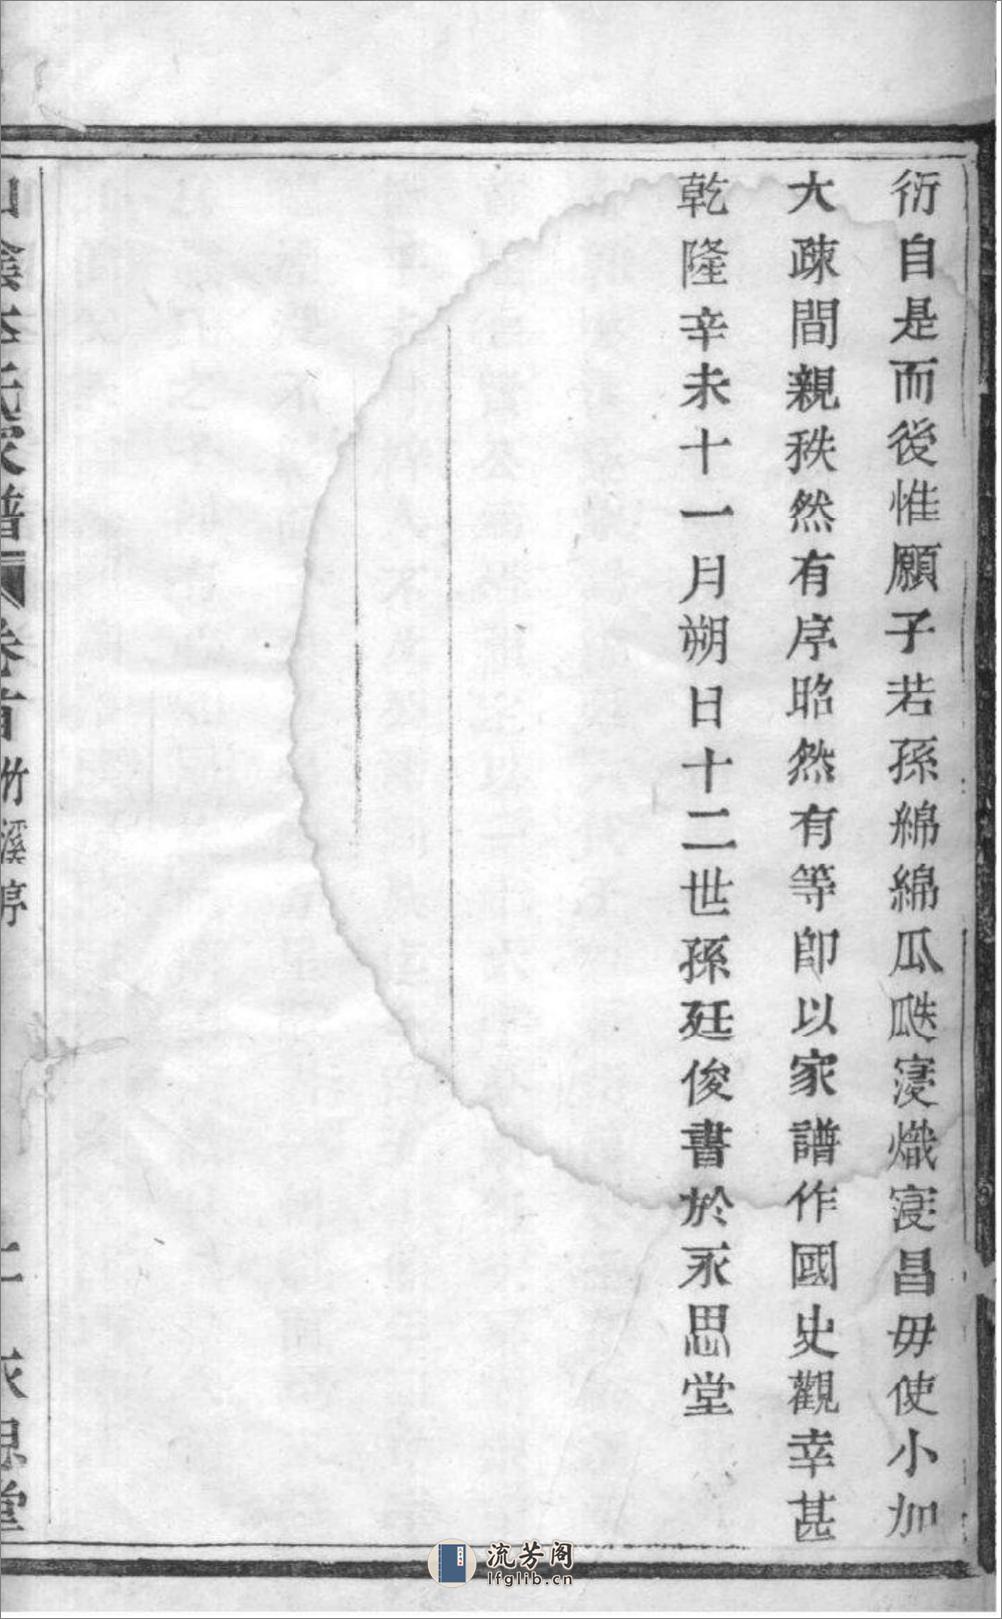 衍自是而後惟願子若孫綿綿瓜瓞寖熾寖昌毋使小加
大疎間親秩然有序昭然有等即以家譜作國史觀幸甚
乾隆辛未十一月朔日十二世孫廷俊書於永思堂
山陰李氏家譜 卷首 竹溪亭 二 永思堂
流芳阁
lfglib.cn